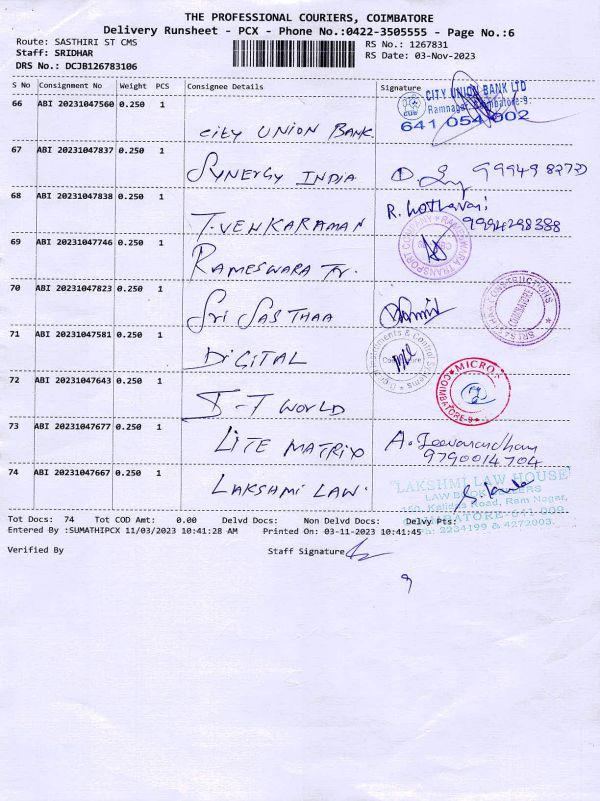 THE PROFESSIONAL COURIERS, COIMBATORE
Delivery Runsheet - PCX - Phone No.:0422-3505555 - Page No.:6
Route: SASTHIRI ST CMS
RS No.: 1267831
Staff: SRIDHAR
RS Date: 03-Nov-2023
DRS No.: DCJB126783106
S No Consignment No Weight PCS Consignee Details Signature
66 ABI 20231047560 0.250 1
CITY UNION BANK LTD
Ramnagar Coimbatore-9.
CUB
641 054 002
CITY UNION BANK.
67 ABI 20231047837 0.250 1
SYNERGY INDIA
68 ABI 20231047838 0.250 1
T.VENKARAMAN
9994298388
69 ABI 20231047746 0.250 1
RAMESWARA TRANSPORT COMPANY
RAMESWARA Tr.
70 ABI 20231047823 0.250 1
Sri SASTHAA
71 ABI 20231047581 0.250 1
DIGITAL
72 ABI 20231047643 0.250 1
MICRO
COIMBATORE-9
I-T WORLD
73 ABI 20231047677 0.250 1
LITE MATRIX
9790014704
74 ABI 20231047667 0.250 1
LAKSHMI LAW.
"LAKSHMI LAW HOUSE"
LAW BOOK SELLERS
150, Kalidas Road, Ram Nagar,
COIMBATORE-641 009.
Ph: 2234199 & 4272003.
Tot Docs: 74 Tot COD Amt: 0.00 Delvd Docs: Non Delvd Docs: Delvy Pts:
Entered By :SUMATHIPCX 11/03/2023 10:41:28 AM Printed On: 03-11-2023 10:41:45
Verified By Staff Signature